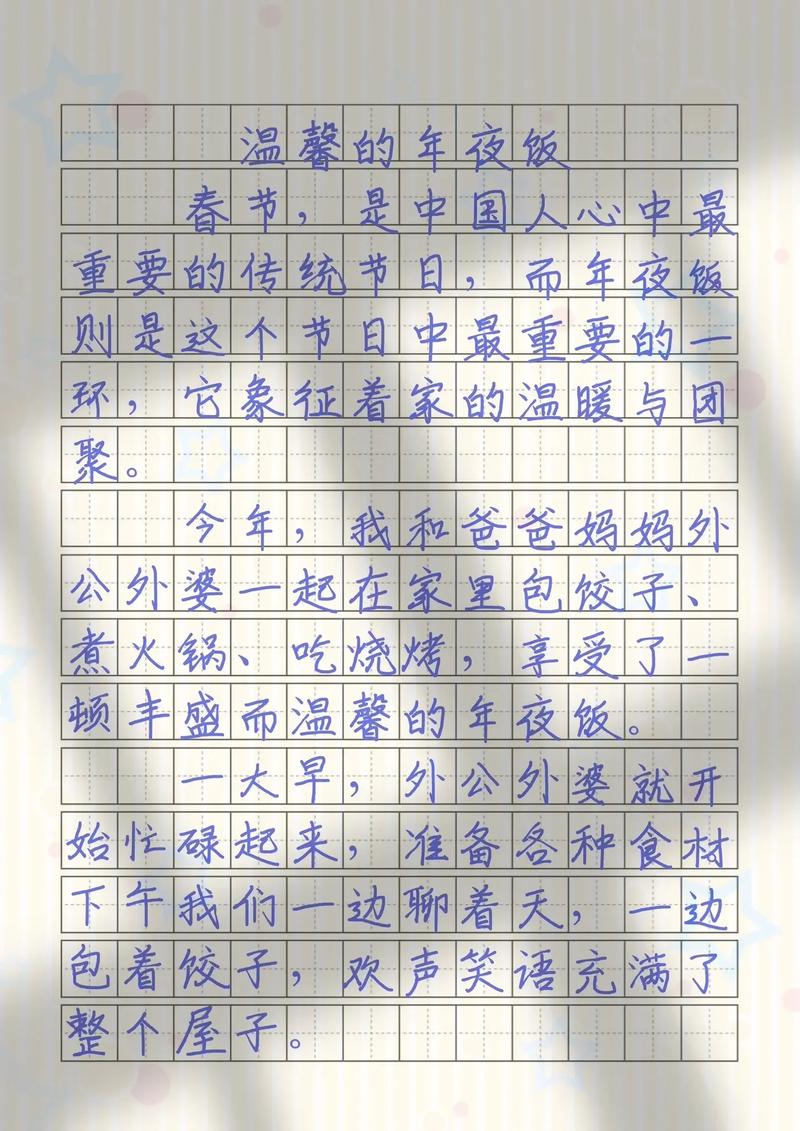 温馨的年夜饭
春节，是中国人心中最
重要的传统节日，而年夜饭
则是这个节日中最重要的一
环，它象征着家的温暖与团
聚。
今年，我和爸爸妈妈外
公外婆一起在家里包饺子、
煮火锅、吃烧烤，享受了一
顿丰盛而温馨的年夜饭。
一大早，外公外婆就开
始忙碌起来，准备各种食材。
下午我们一边聊着天，一边
包着饺子，欢声笑语充满了
整个屋子。